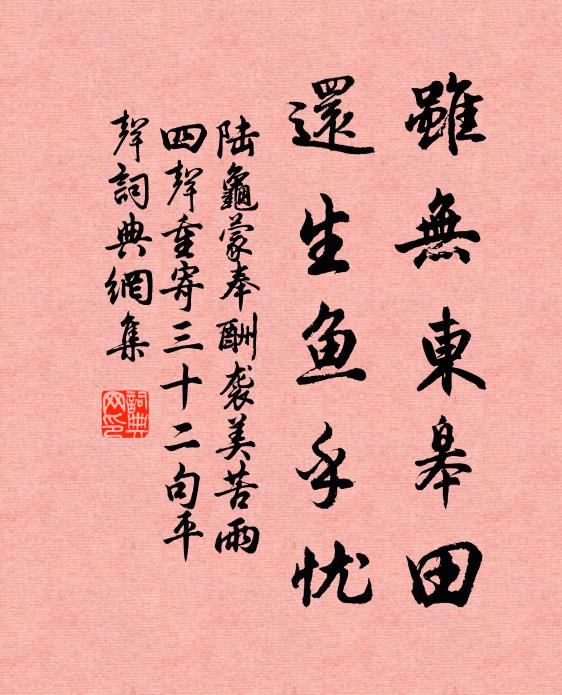 雖無東皋田
還生魚乎忧
陸龜蒙奉酬袭美苦雨
四聲重寄三十二句平
聲詞典網集
詞典
网印